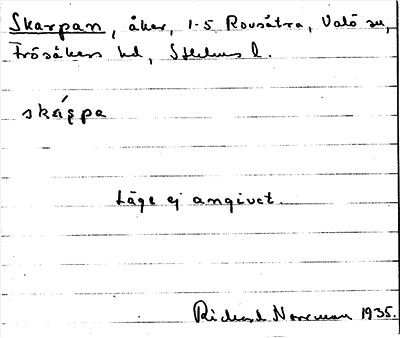 Skarpan, åker, 1-5 Rovsätra, Valö sn,
Frösåkers hd, Sthlms l.
skarpa
Läge ej angivet.
Richard Norrman 1935.